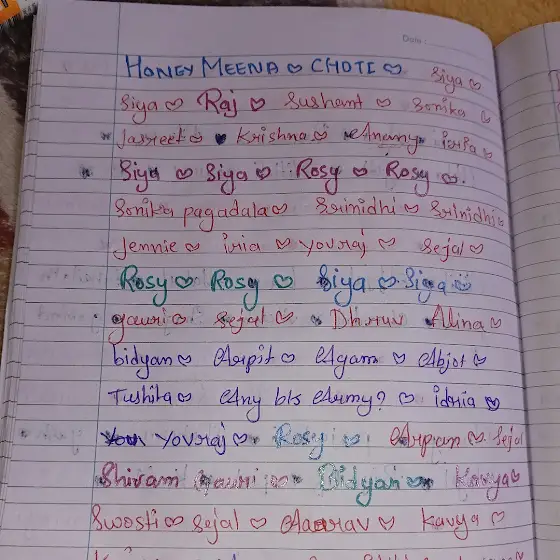 Date :
HONEY MEENA ♡ CHOTI ♡ Siya ♡
Siya ♡ Raj ♡ Sushant ♡ Sonika ♡
Jasreet ♡ Krishna ♡ Anany
Siya ♡ Siya ♡ Rosy ♡ Rosy ♡.
Sonika pagadala ♡ Srinidhi ♡ Srinidhi ♡
Jennie ♡ iria ♡ yovraj ♡ Sejal ♡
Rosy ♡ Rosy ♡ Siya ♡ Siya ♡
gauri ♡ Sejal ♡ Dhruv Alina ♡
bidyan ♡ Arpit ♡ Agam ♡ Abjot ♡
Tushita ♡ Any bts Army? ♡ idria ♡
yovraj ♡ Rosy ♡ Arpan ♡ Sejal
Shivam Gauri ♡ Bidyan ♡ Kavya ♡
Swosti ♡ Sejal ♡ Aaarav ♡ Kavya ♡